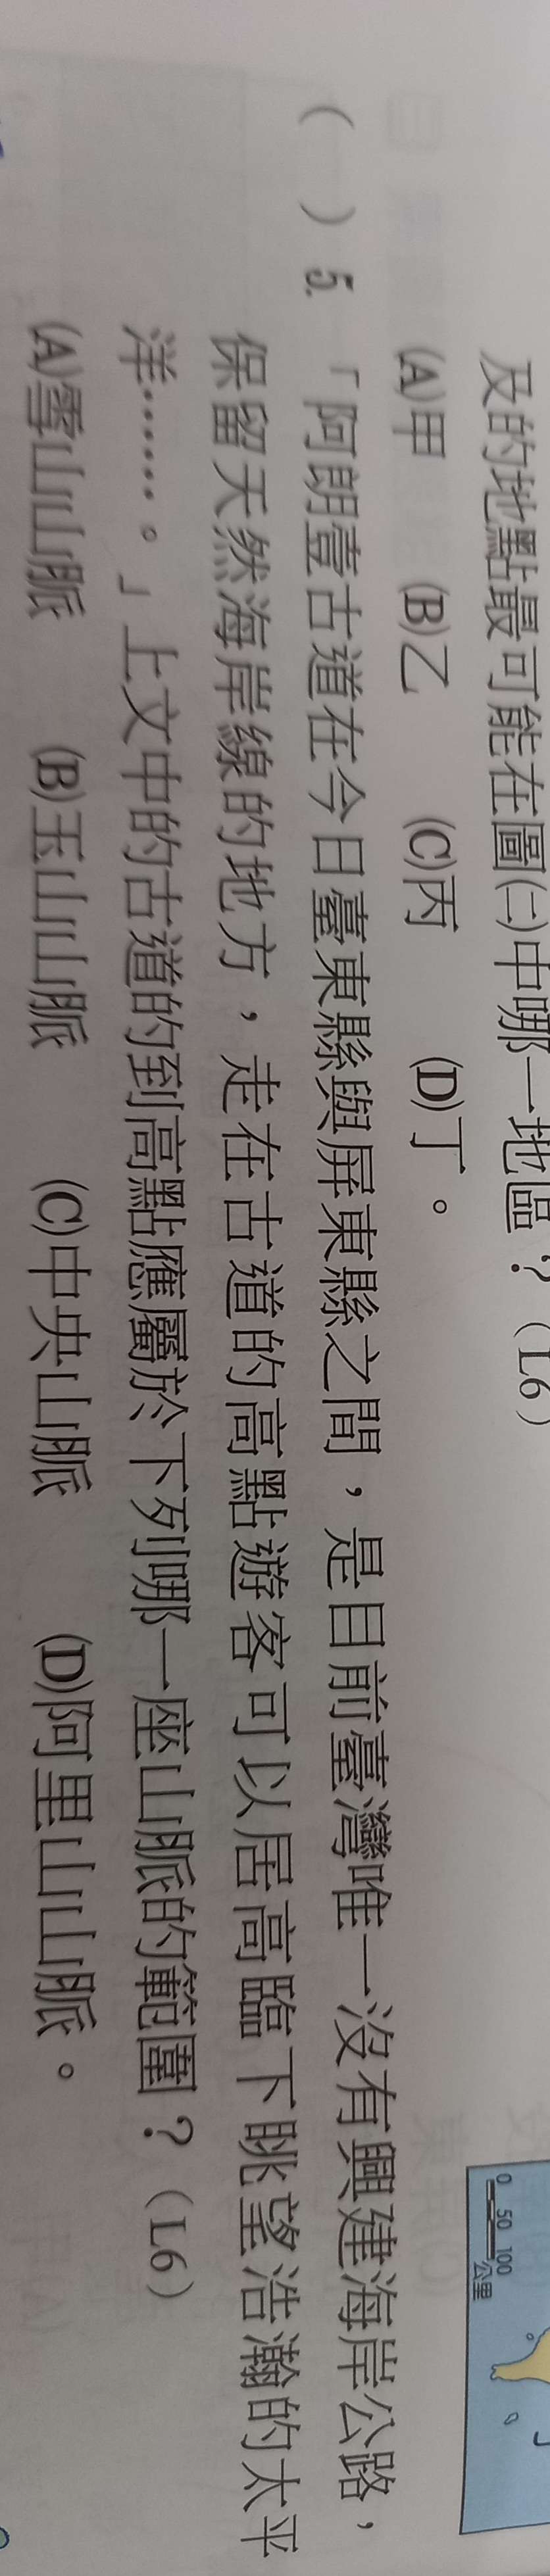 及的地點最可能在圖㈡中哪一地區？（L6）
(A)甲 (B)乙 (C)丙 (D)丁。
（ ）5.「阿朗壹古道在今日臺東縣與屏東縣之間，是目前臺灣唯一沒有興建海岸公路，
保留天然海岸線的地方，走在古道的高點遊客可以居高臨下眺望浩瀚的太平
洋……。」上文中的古道的到高點應屬於下列哪一座山脈的範圍？（L6）
(A)雪山山脈 (B)玉山山脈 (C)中央山脈 (D)阿里山山脈。
0 50 100
公里